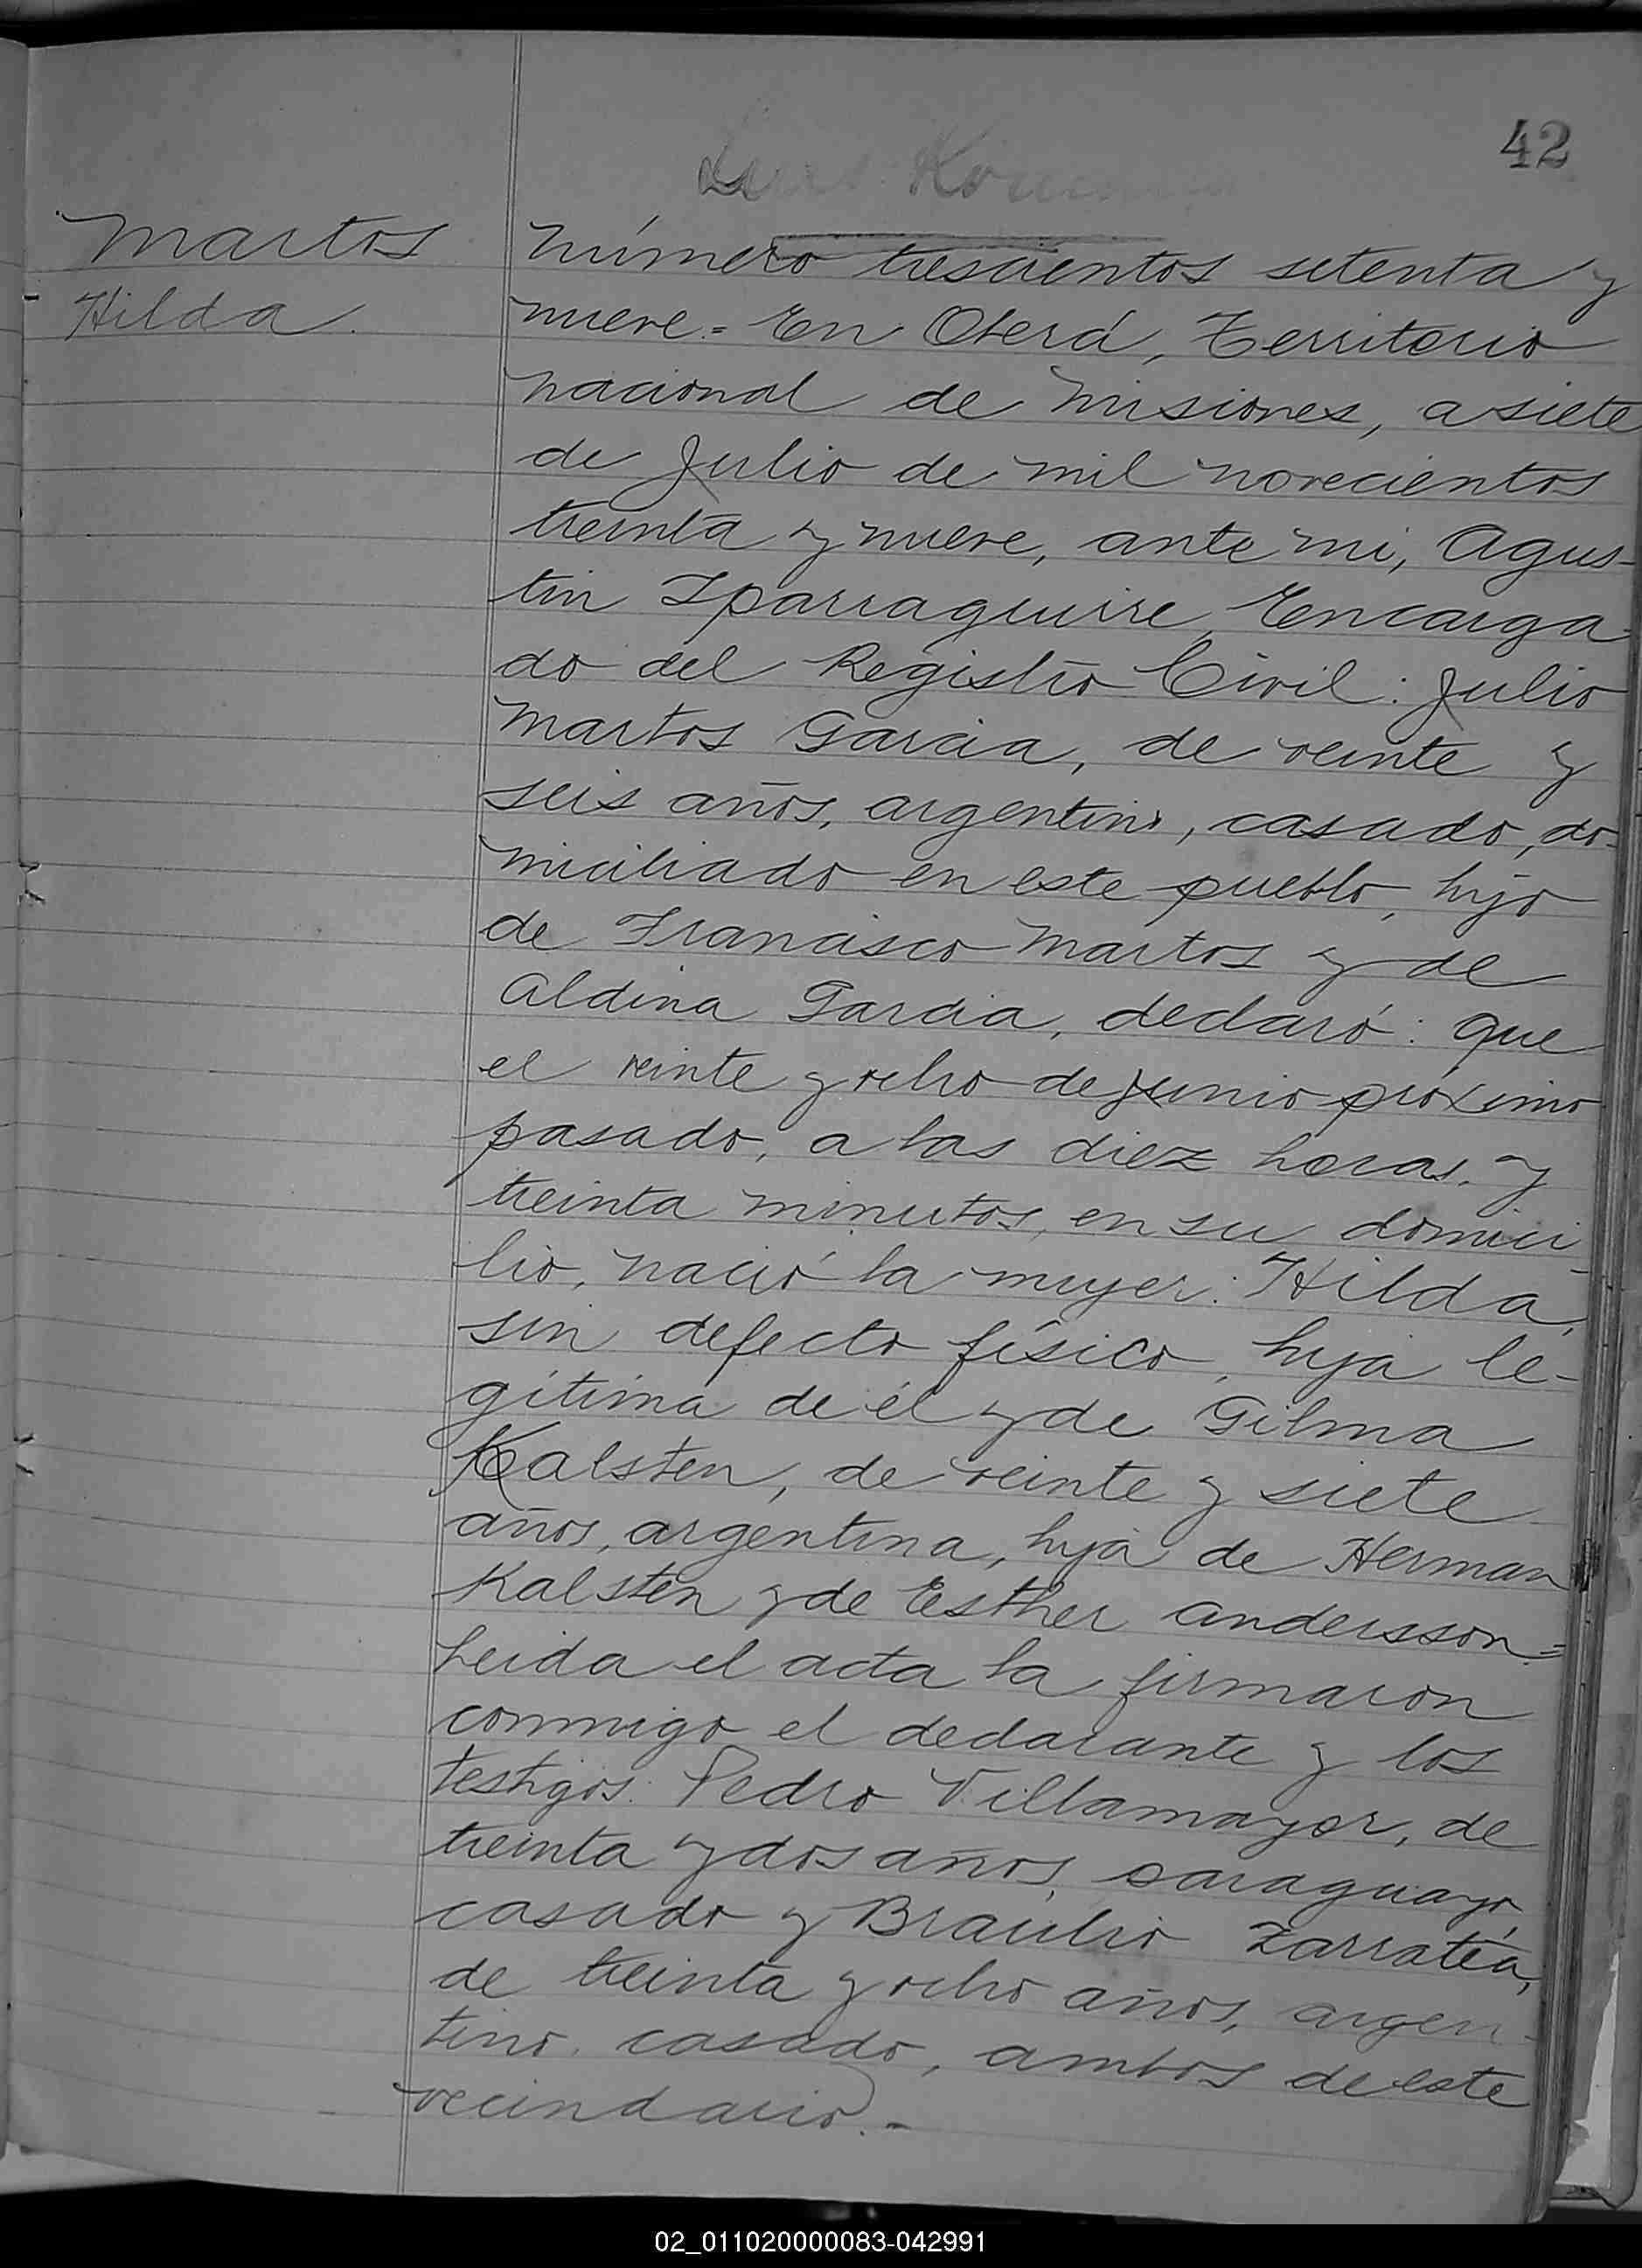 42
Martos
Hilda.
Número trescientos setenta y
nueve = En Oberá, Territorio
nacional de Misiones, a siete
de Julio de mil novecientos
treinta y nueve, ante mi, Agus-
tin Iparraguirre, Encarga
do del Registro Civil: Julio
Martos Garcia, de veinte y
seis años, argentino, casado, do-
miciliado en este pueblo, hijo
de Francisco Martos y de
Aldina Garcia, declaró: que
el veinte y ocho de junio próximo
pasado, a las diez horas, y
treinta minutos, en su domici
lio, nació la mujer: Hilda,
sin defecto físico, hija le-
gítima de él y de Gilma
Kalsten, de veinte y siete
años, argentina, hija de Herman
Kalsten y de Esther Andersson =
Leida el acta la firmaron
conmigo el declarante y los
testigos: Pedro Villamayor, de
treinta y dos años, paraguayo,
casado y Braulio Zarratéa,
de treinta y ocho años, argen-
tino, casado, ambos de este
vecindario.-
02_011020000083-042991